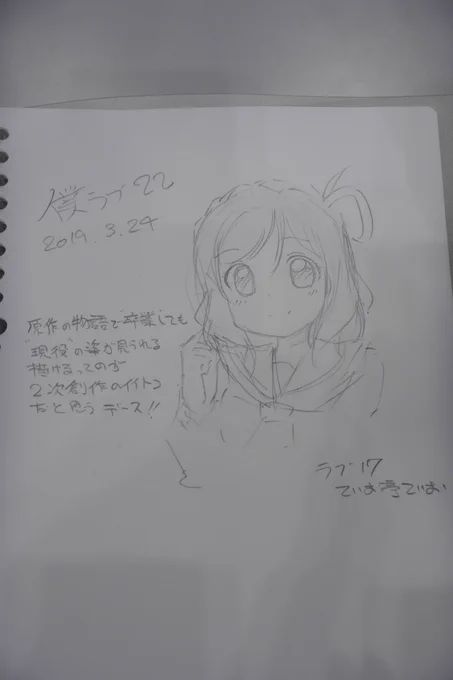 僕ラブ22
2019.3.24
原作の物語で"卒業"しても
"現役"の姿が見られる
描けるってのが
2次創作のイイトコ
だと思うデース!!
ラブ17
ていお亭ていお